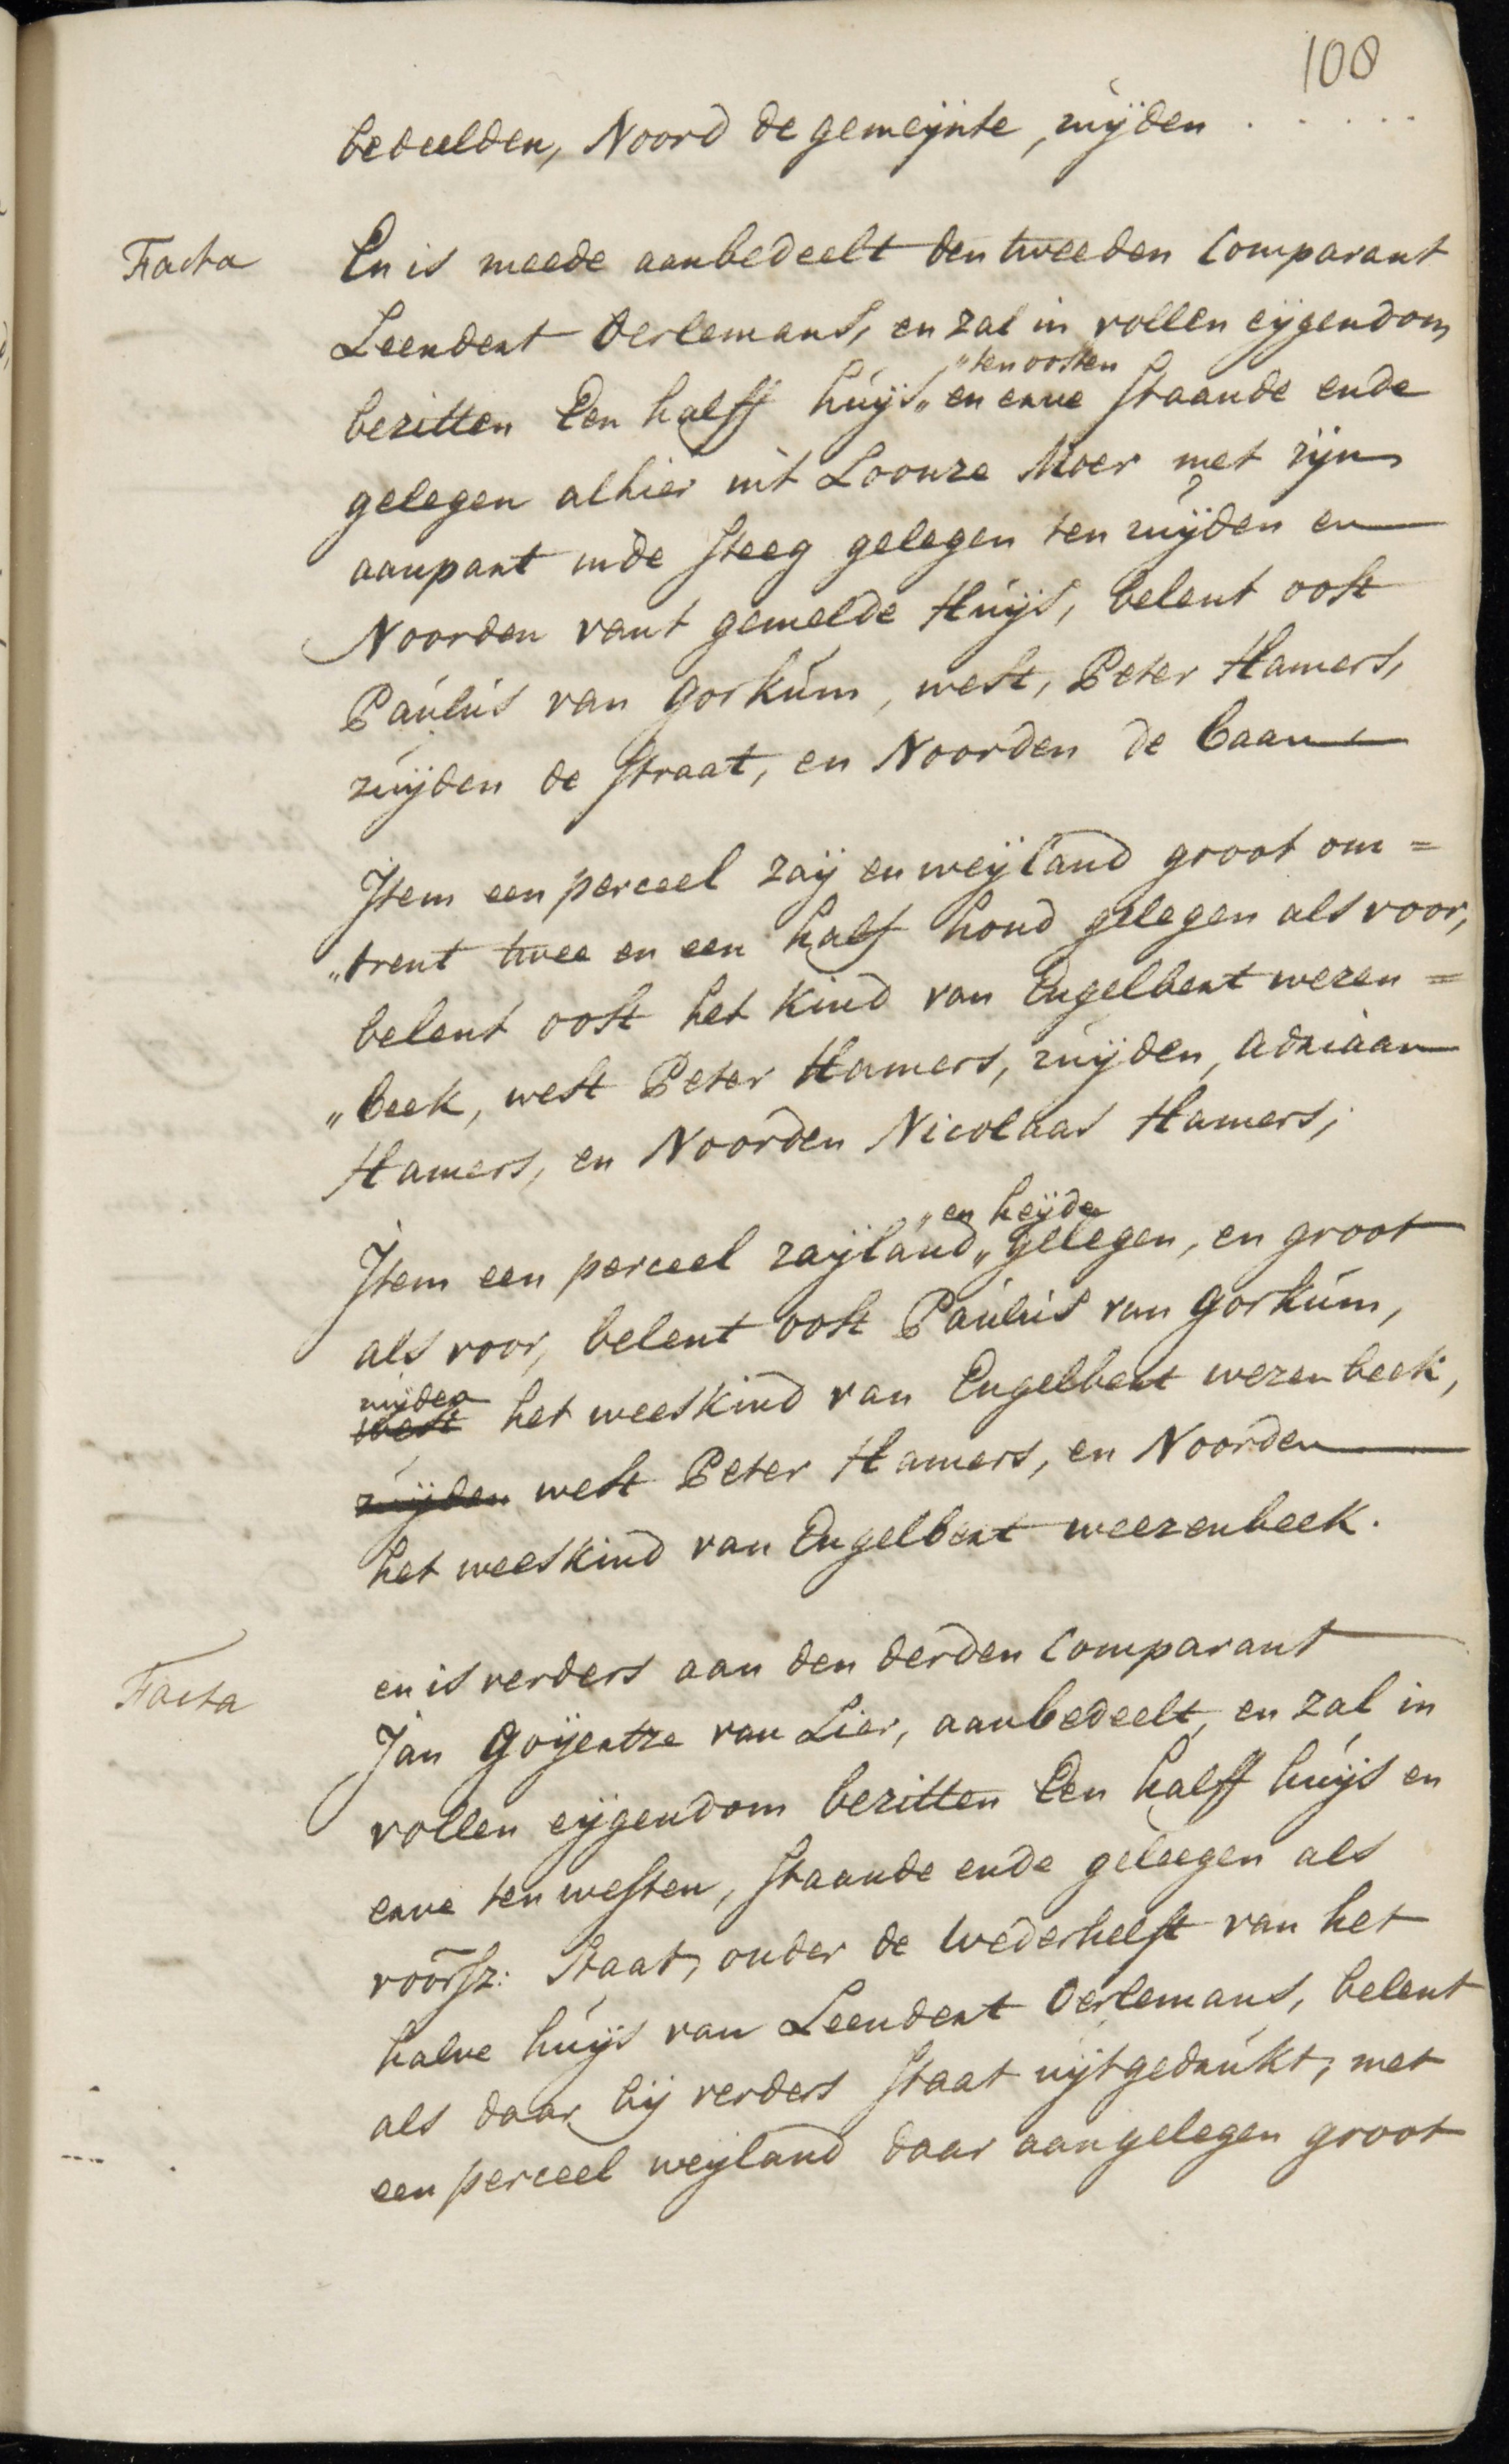 108
bedeelden, Noord de gemeijnte, zuijden . . . . .
Facta
En is meede aanbedeelt den tweeden Comparant
Leendert Oerlemans, en zal in vollen eijgendom
„ten oosten
bezitten Een halff huijs „ en erve staande ende
gelegen alhier int Loonze Moer met zijn
aanpart inde steeg gelegen ten zuijden en
Noorden vant gemelde Huijs, belent oost
Paulus van Gorkum, west, Peter Hamers,
zuijden de straat, en Noorden de baan
Item een perceel zaij en weijland groot om=
„trent twee en een half hond gelegen als voor,
belent oost het kind van Engelbert wezen=
„beek, west Peter Hamers, zuijden, adriaan
Hamers, en Noorden Nicolaas Hamers;
„en heijde
Item een perceel zaijland „ gelegen, en groot
als voor, belent oost Paulus van Gorkum,
zuijden
west het weeskind van Engelbert wezenbeek,
zuijden west Peter Hamers, en Noorden
het weeskind van Engelbert weezenbeek.
Facta
en is verders aan den derden Comparant
Jan Goijertze van Lier, aanbedeelt, en zal in
vollen eijgendom bezitten Een halff huijs en
erve ten westen, staande ende geleegen als
voorsz: staat, onder de wederhelft van het
halve huijs van Leendert Oerlemans, belent
als daar bij verders staat uijtgedrukt, met
een perceel weijland daar aangelegen groot